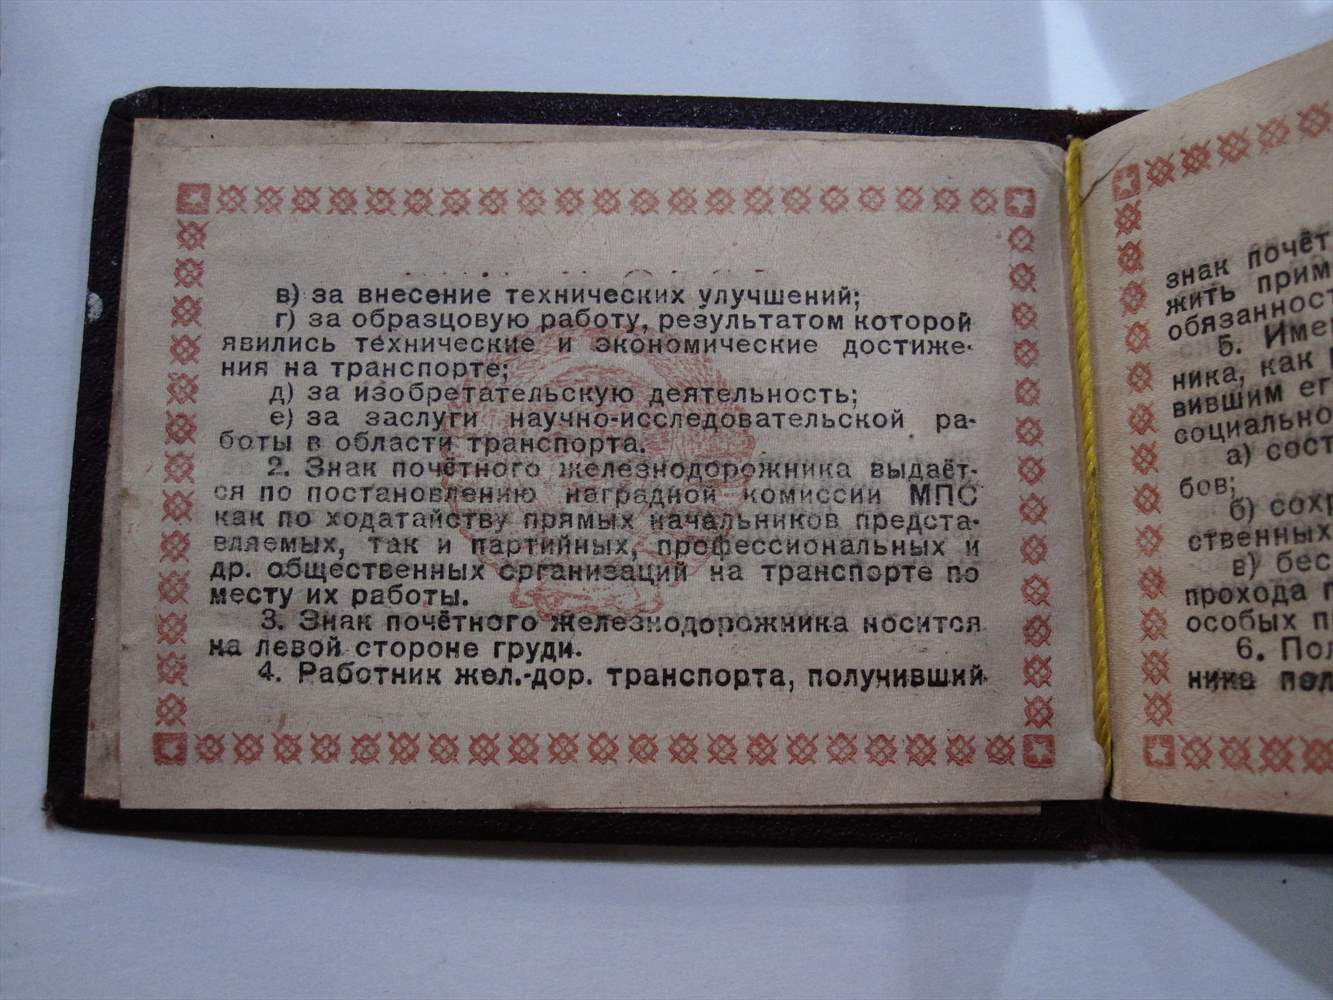 в) за внесение технических улучшений;
г) за образцовую работу, результатом которой
явились технические и экономические достиже-
ния на транспорте;
д) за изобретательскую деятельность;
е) за заслуги научно-исследовательской ра-
боты в области транспорта.
2. Знак почётного железнодорожника выдаёт-
ся по постановлению наградной комиссии МПС
как по ходатайству прямых начальников предста-
вляемых, так и партийных, профессиональных и
др. общественных организаций на транспорте по
месту их работы.
3. Знак почётного железнодорожника носится
на левой стороне груди.
4. Работник жел.-дор. транспорта, получивший
знак почёт
жить прим
обязанност
5. Име
ника, как
вившим ег
социально
а) сост
бов;
б) сохр
ственных
в) бес
прохода п
особых п
6. Пол
ника пол